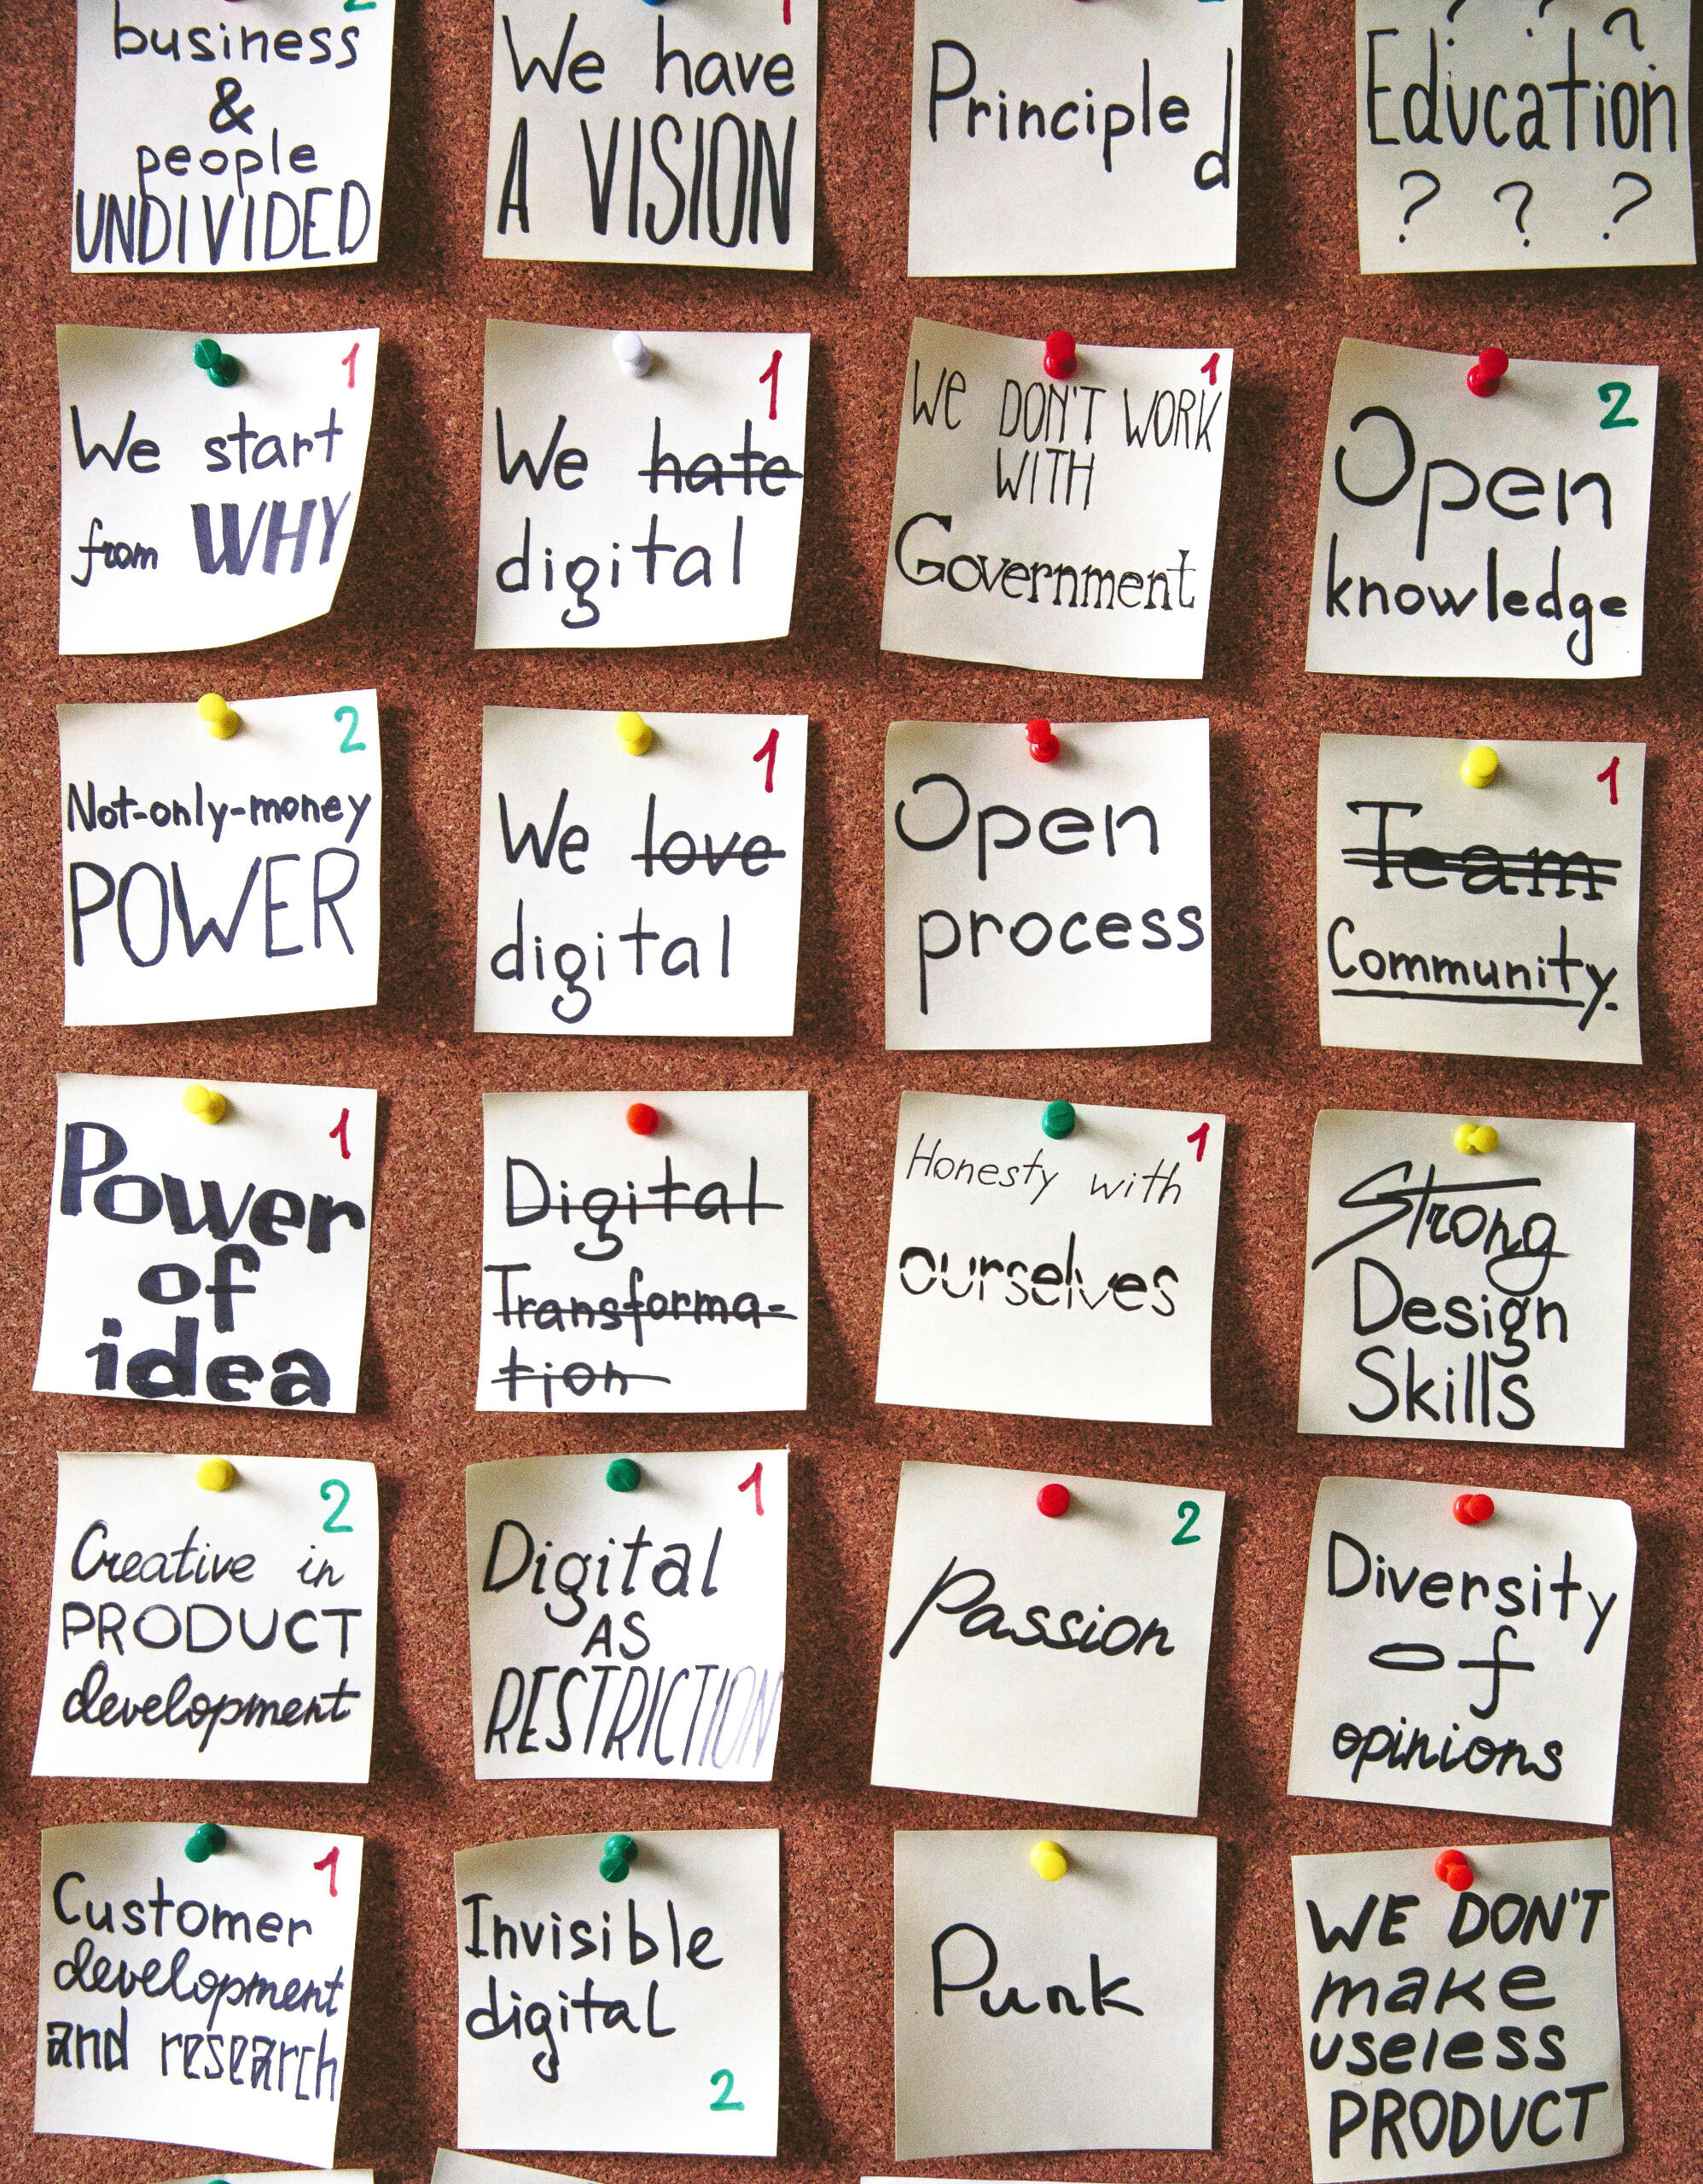 2
business
&
people
UNDIVIDED
1
We have
A VISION
Principle
d
2
? ? ?
Education
? ? ?
1
We start
from WHY
1
We hate
digital
1
We DON'T WORK
WITH
Government
2
Open
knowledge
2
Not-only-money
POWER
1
We love
digital
Open
process
1
Team
Community.
1
Power
of
idea
Digital
Transforma-
tion
1
Honesty with
ourselves
Strong
Design
Skills
2
Creative in
PRODUCT
development
1
Digital
AS
RESTRICTION
2
Passion
Diversity
of
opinions
1
Customer
development
and research
Invisible
digital
2
Punk
WE DON'T
make
useless
PRODUCT